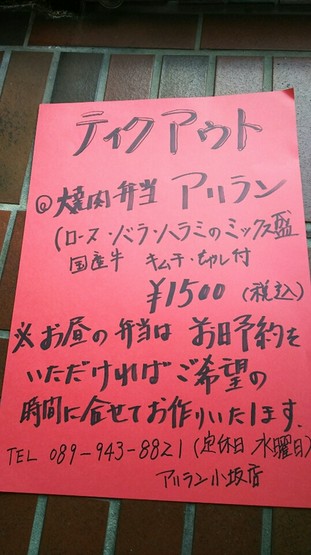 テイクアウト
@焼肉弁当 アリラン
(ロース・バラ・ハラミのミックス盛
国産牛 キムチ・もやし付
¥1500(税込)
※お昼の弁当は 前日予約を
いただければご希望の
時間に合せてお作りいたします.
TEL 089-943-8821(定休日 水曜日)
アリラン小坂店